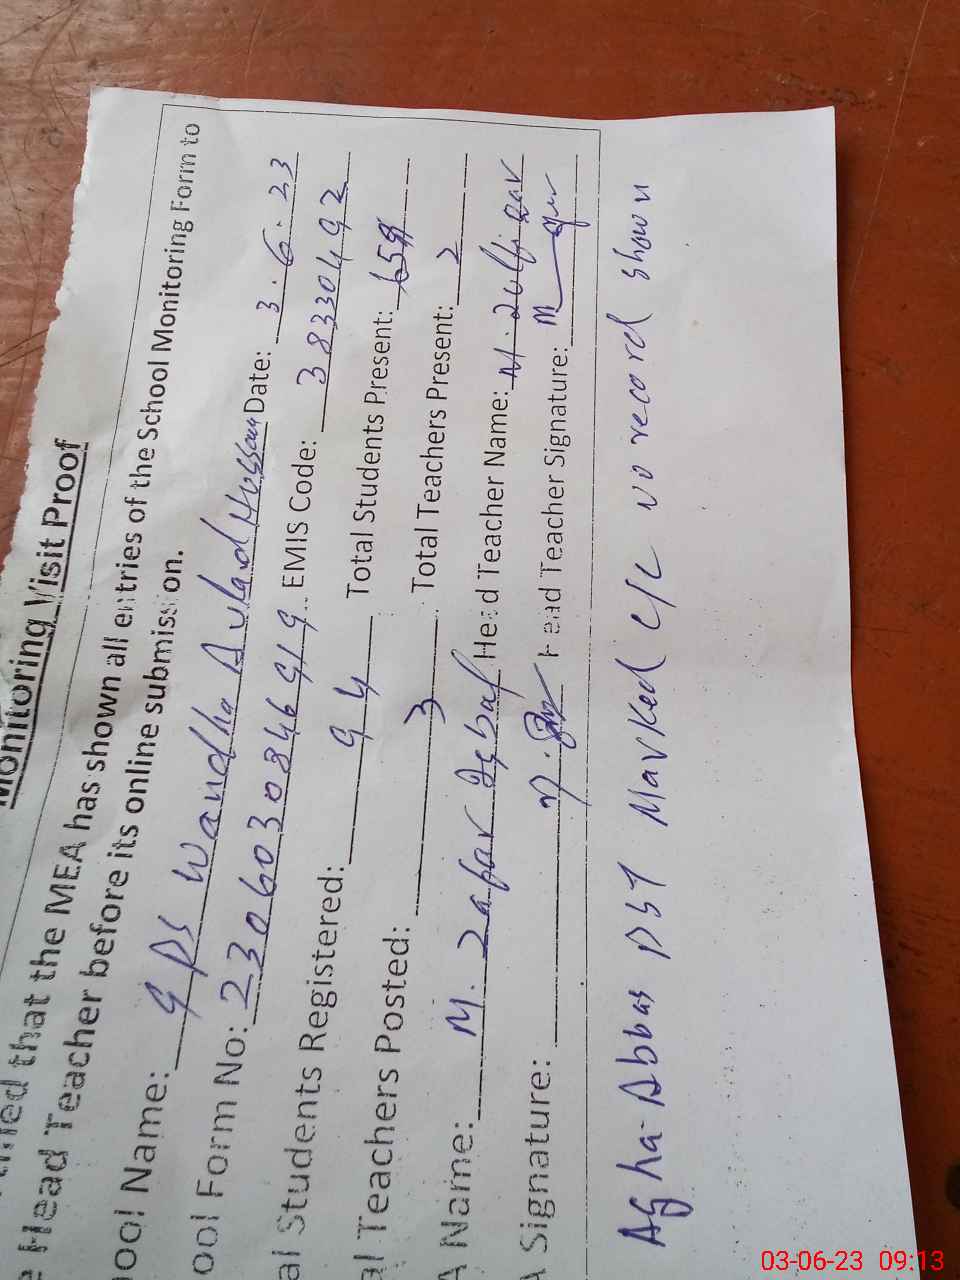 Monitoring Visit Proof
that the MEA has shown all entries of the School Monitoring Form to
Head Teacher before its online submission.
ool Name: GPS Wandha Aulad Hussain Date: 3.6.23
ool Form No: 2306030846919 EMIS Code: 38330492
al Students Registered: 94 Total Students Present: 59
al Teachers Posted: 3 Total Teachers Present: 2
A Name: M. Zafar Iqbal Head Teacher Name: M. Zulfiqar
A Signature: Head Teacher Signature:
Agha Abbas PST Marked C/L no record shown
03-06-23 09:13